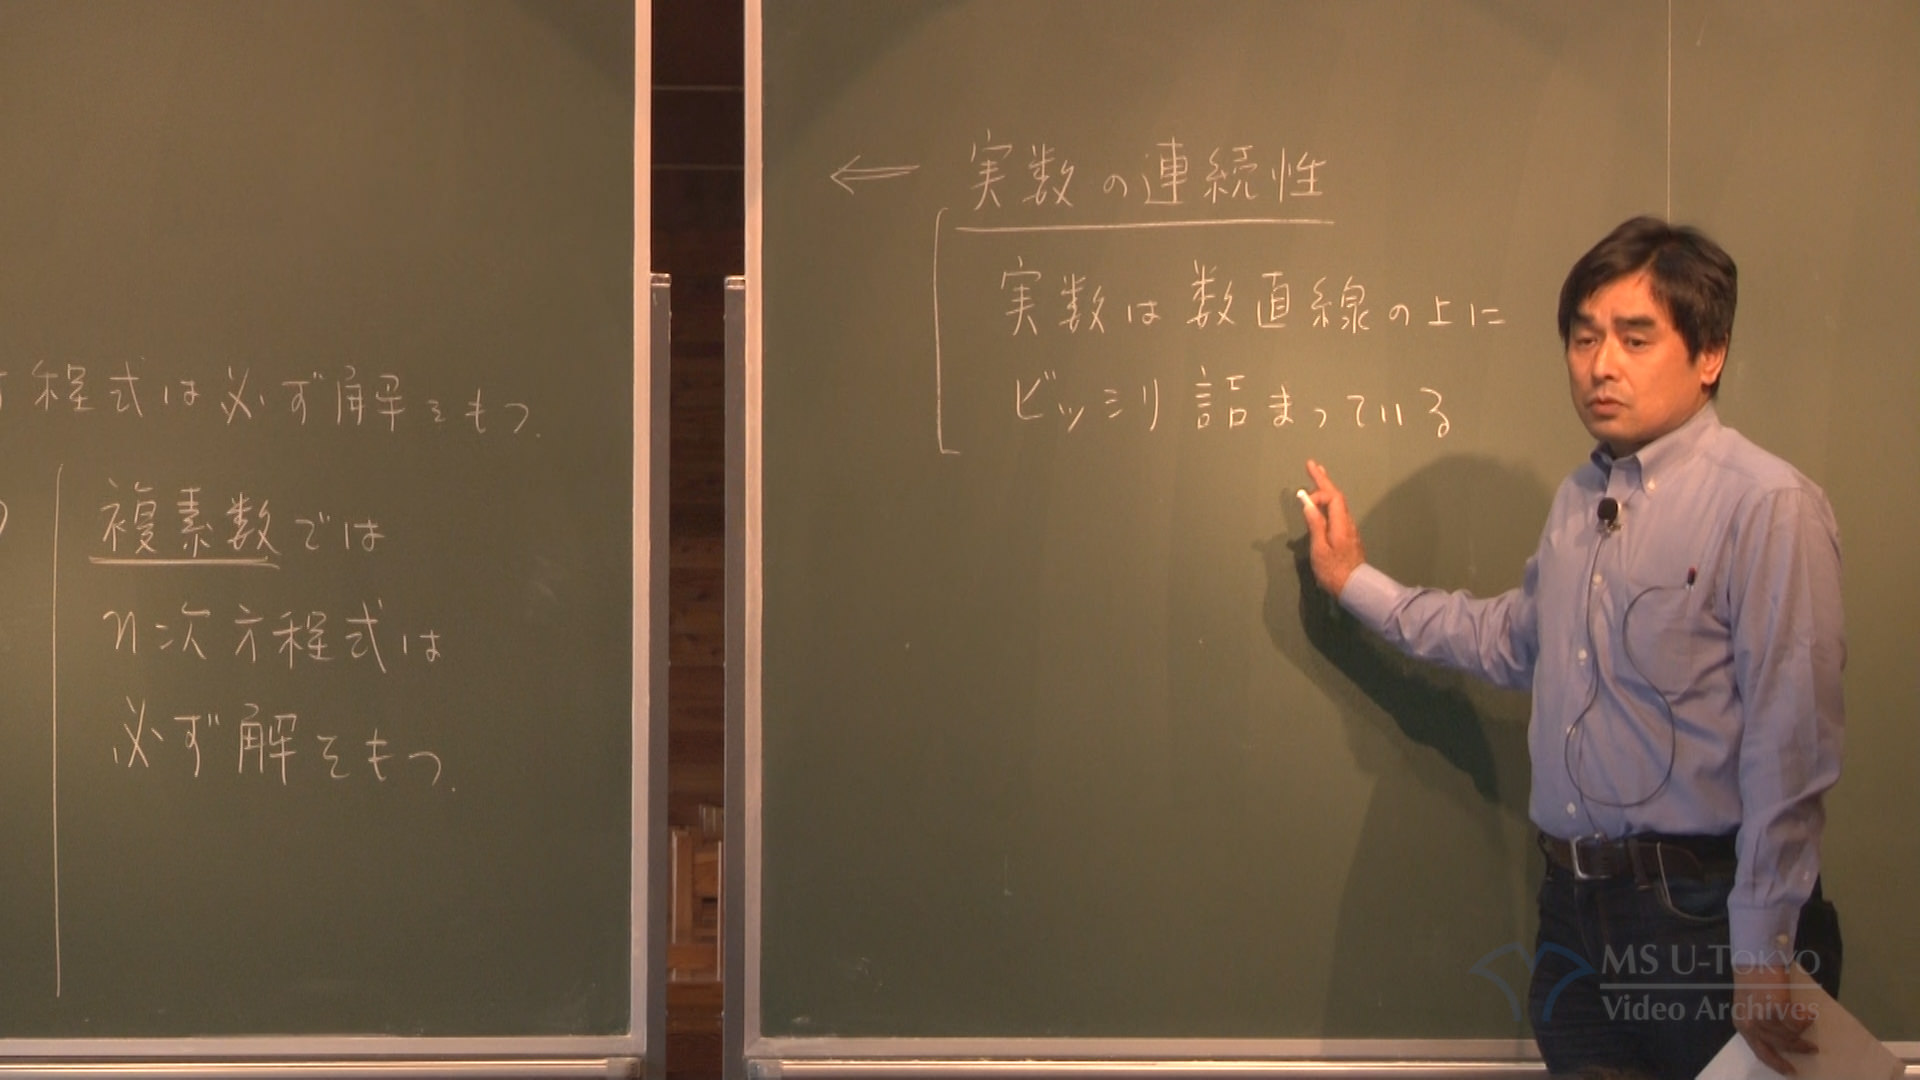 方程式は必ず解をもつ.
複素数では
n次方程式は
必ず解をもつ.
⇐ 実数の連続性
実数は数直線の上に
ビッシリ詰まっている
MS U-TOKYO
Video Archives